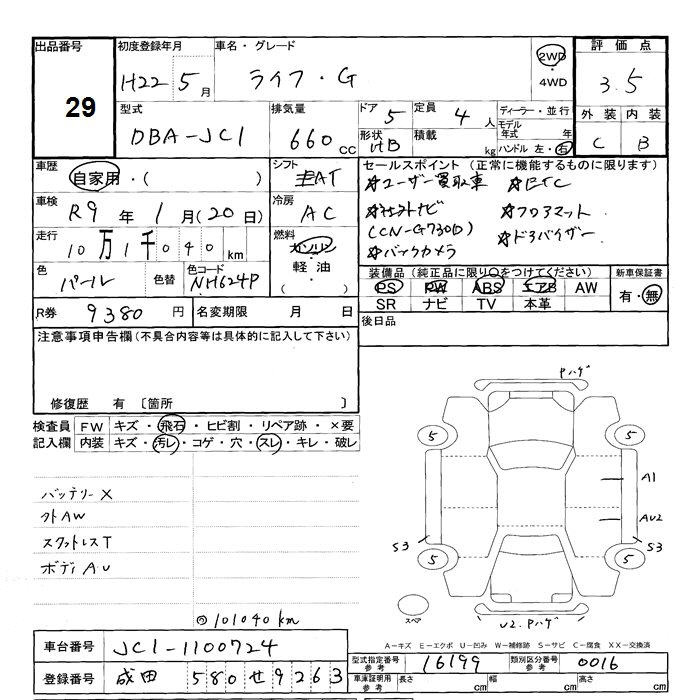 出品番号 初度登録年月 車名・グレード 2WD 評価点
29 H22 5月 ライフ・G ・4WD 3.5
型式 排気量 ドア 5 定員 4人 ディーラー・並行 外装 内装
DBA-JC1 660cc 形状 HB 積載 kg モデル年式 年 ハンドル 左・右 C B
車歴 自家用・( ) シフト AT セールスポイント (正常に機能するものに限ります)
車検 R9年 1月(20日) 冷房 AC ☆ユーザー買取車 ☆ETC
☆社外ナビ ☆フロアマット
走行 10万1千040km 燃料 ガソリン・軽油・( ) (CN-G730D) ☆ドラバイザー
☆バックカメラ
色 パール 色替 色コード NH624P 装備品 (純正品に限り○をつけてください) 新車保証書
PS PW ABS エアB AW 有・無
SR ナビ TV 本革
R券 9380円 名変期限 月 日 後日品
注意事項申告欄(不具合内容等は具体的に記入して下さい)
修復歴 有 〔箇所 〕
検査員 FW キズ・飛石・ヒビ割・リペア跡・×要
記入欄 内装 キズ・汚レ・コゲ・穴・スレ・キレ・破レ
Pハゲ
5 5
A1
バッテリーX
外AW AU2
スタットレスT S3 S3
ボディAU 5 5
スペア
◎101040km U2.Pハゲ
A-キズ E-エクボ U-凹み W-補修跡 S-サビ C-腐食 XX-交換済
車台番号 JC1-1100724
型式指定番号 参考 16199 類別区分番号 参考 0016
登録番号 成田 580 せ 9263
車庫証明用 参考 長さ cm 幅 cm 高さ cm